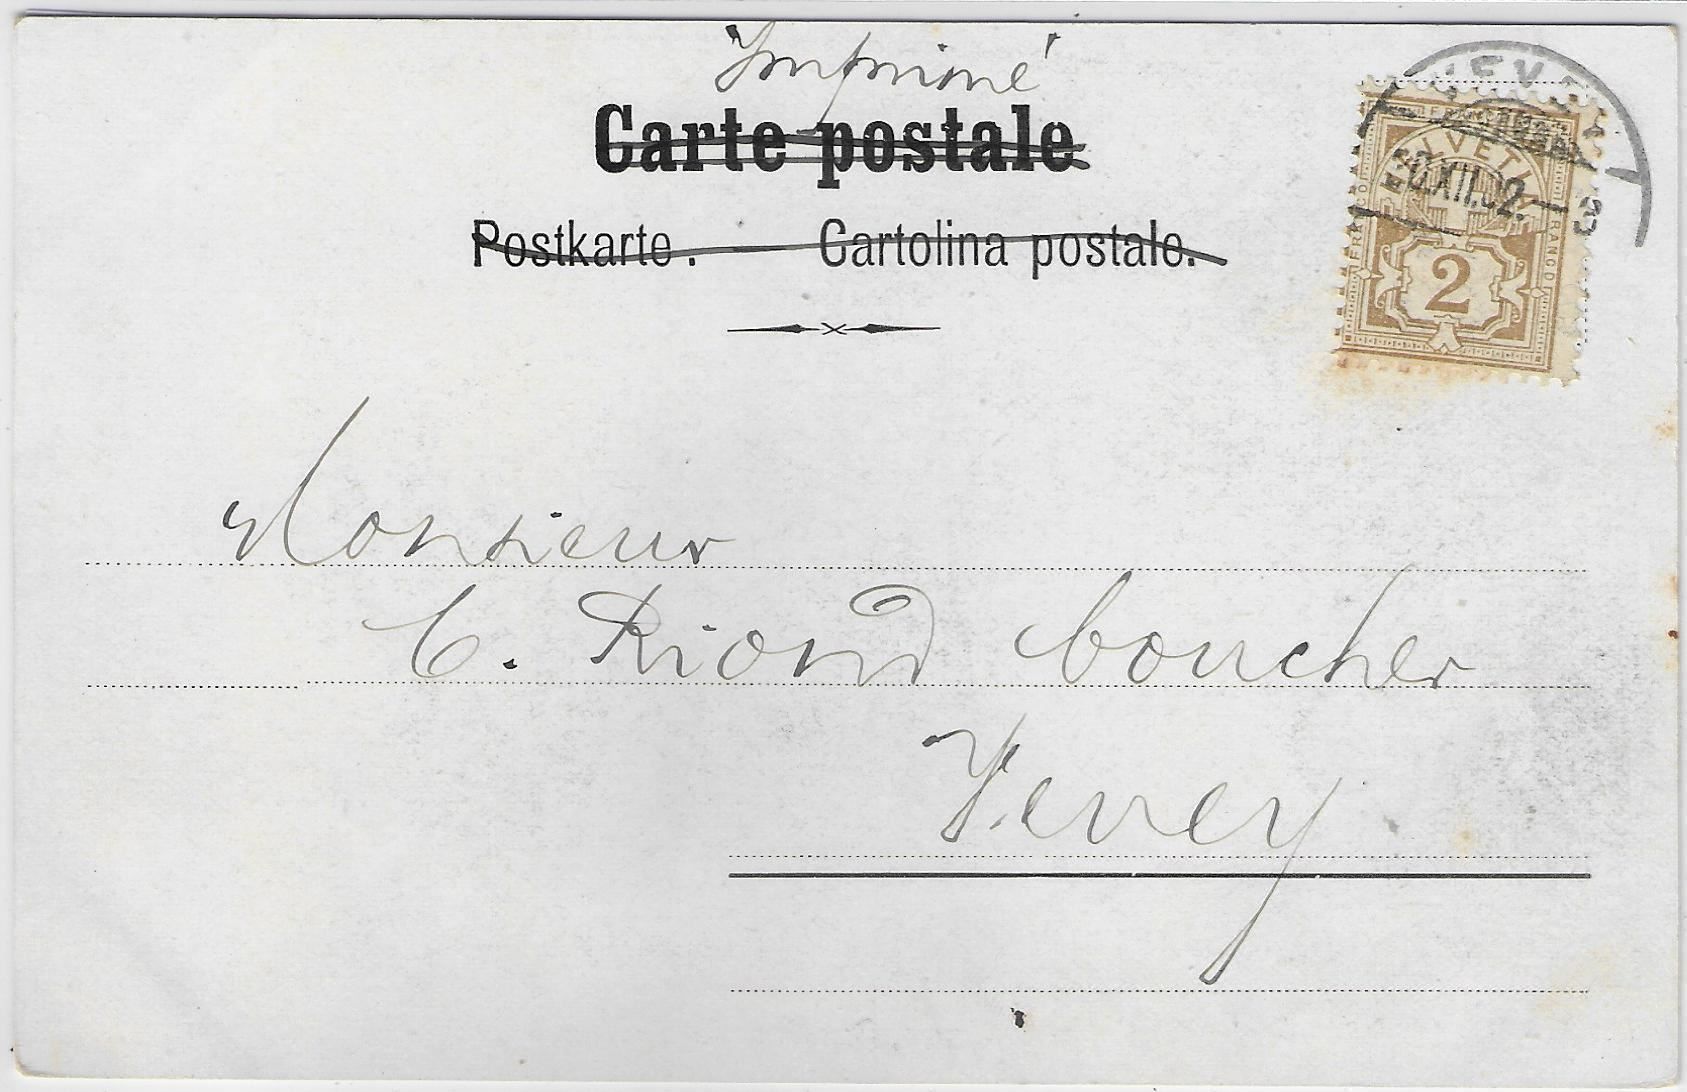 Imprimé
Carte postale
Postkarte. — Cartolina postale.
VEVEY
HELVETIA
FRANCO
FRANCO
2
Monsieur
C. Riond boucher
Vevey